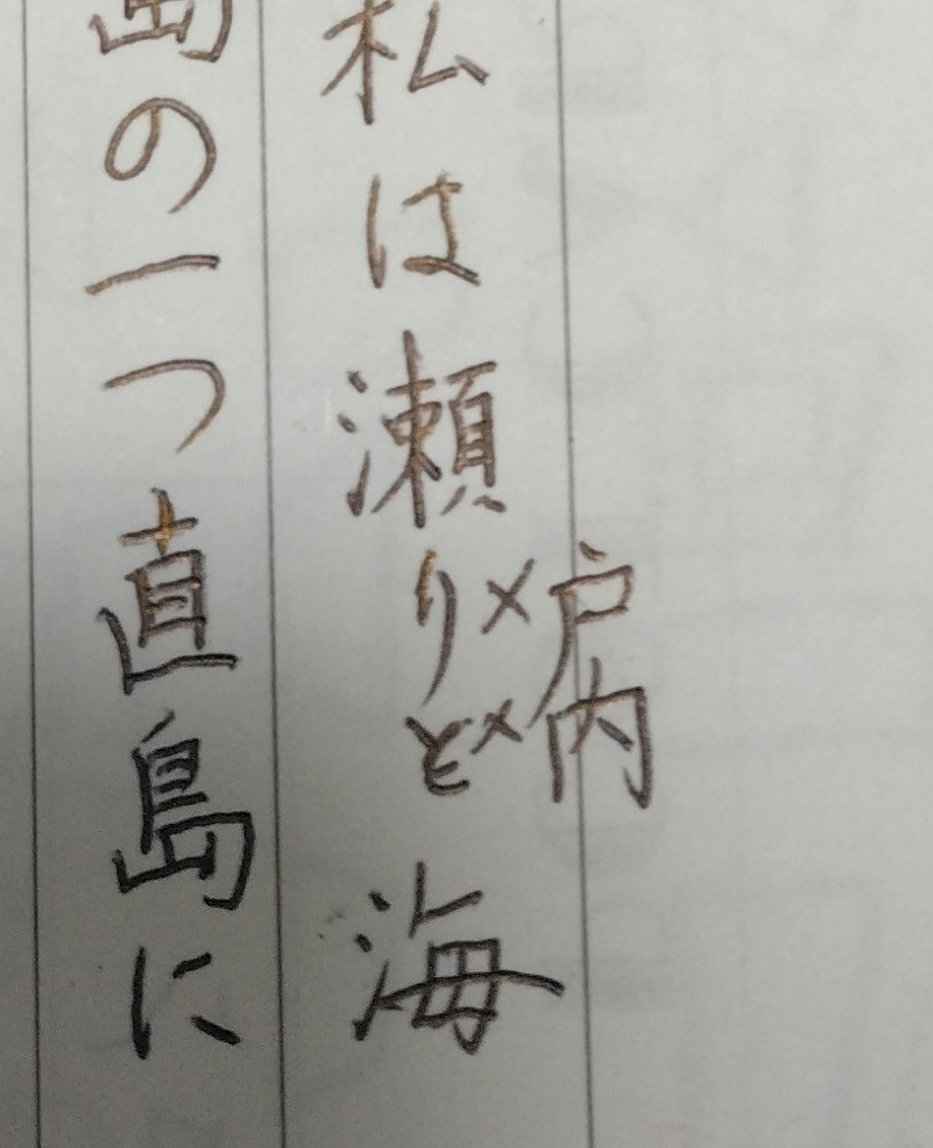 私は瀬りと海
××
戸内
島の一つ直島に